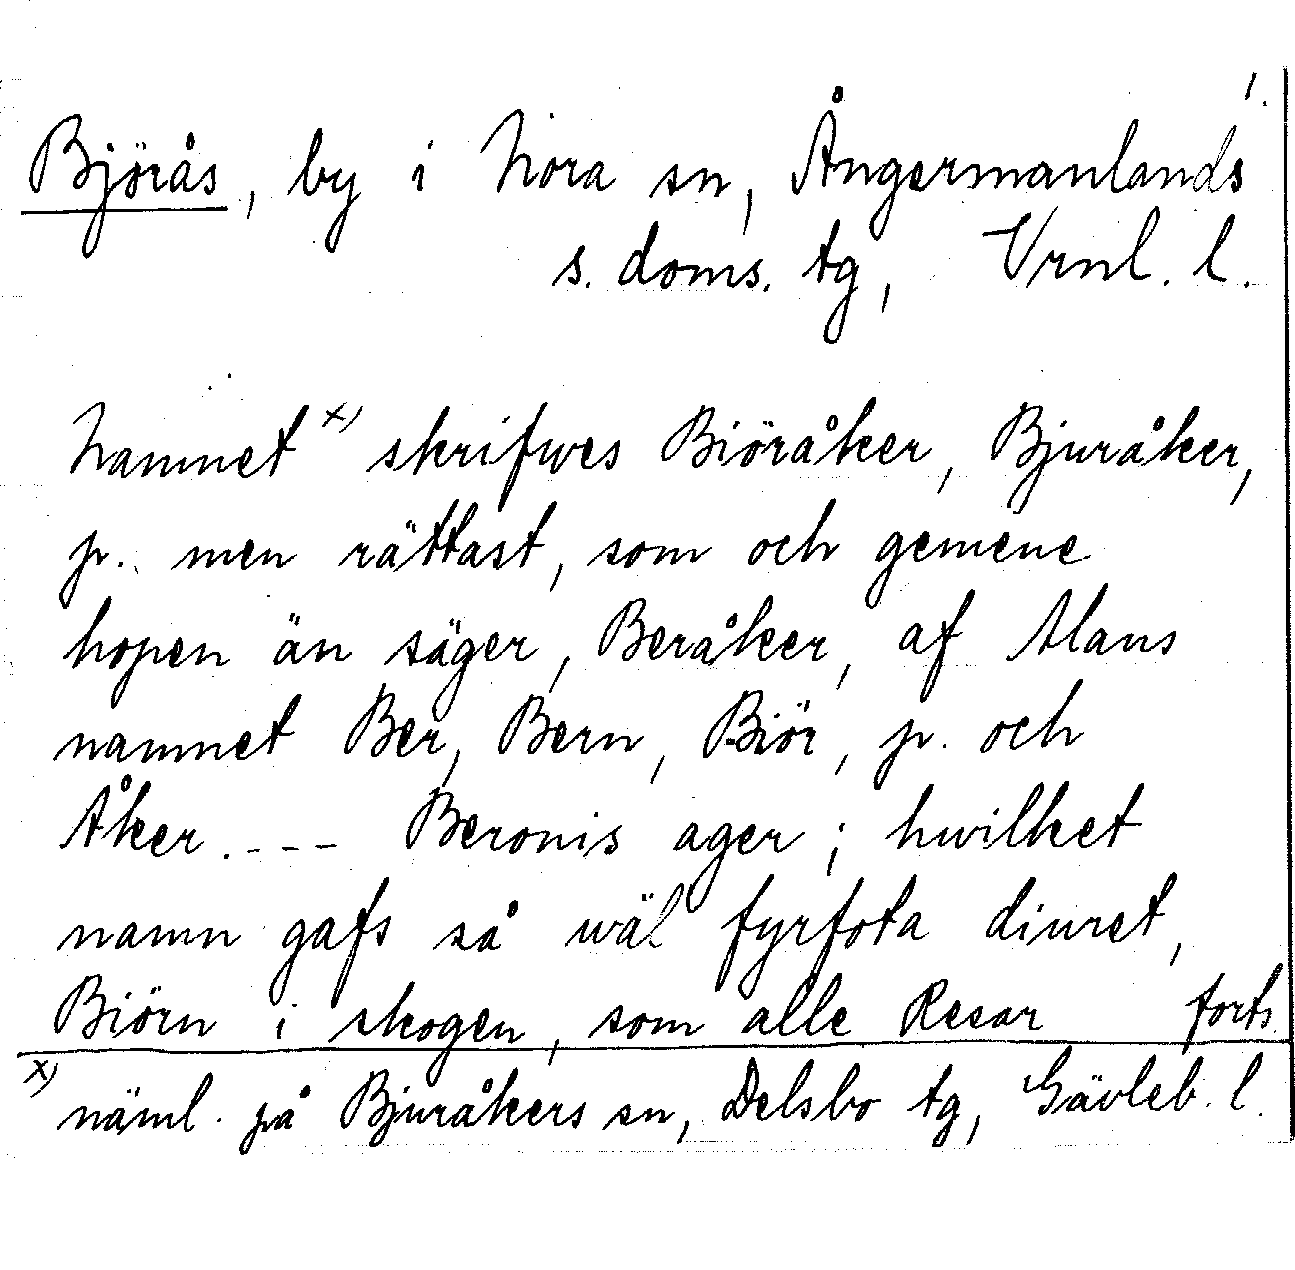 1.
Björås, by i Nora sn, Ångermanlands
s. doms. tg, Vrnl. l.
Namnet x) skrifwes Biöråker, Bjuråker,
p. men rättast, som och gemene
hopen än säger, Beråker, af Mans
namnet Ber, Bern, Biör, p. och
Åker. - - - Beronis ager; hwilket
namn gafs så wäl fyrfota diuret,
Biörn i skogen, som alle Resar forts.
x) näml. på Bjuråkers sn, Delsbo tg, Gävleb. l.